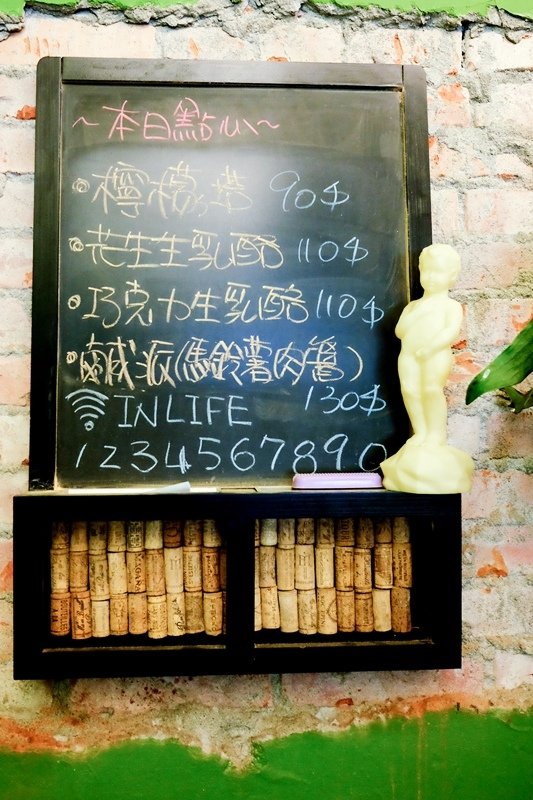 ~本日點心~
•檸檬塔 90$
•花生生乳酪 110$
•巧克力生乳酪 110$
•鹹派(馬鈴薯肉醬)
INLIFE 130$
1234567890